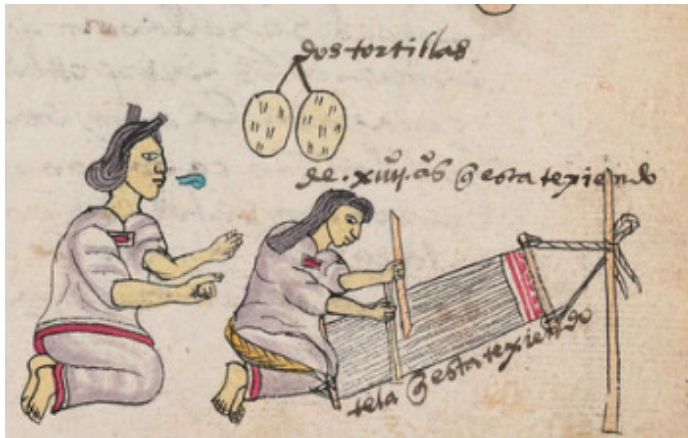 dos tortillas
de. xiiij. aᵒs q̃ esta texiendo
tela q̃ esta texiendo